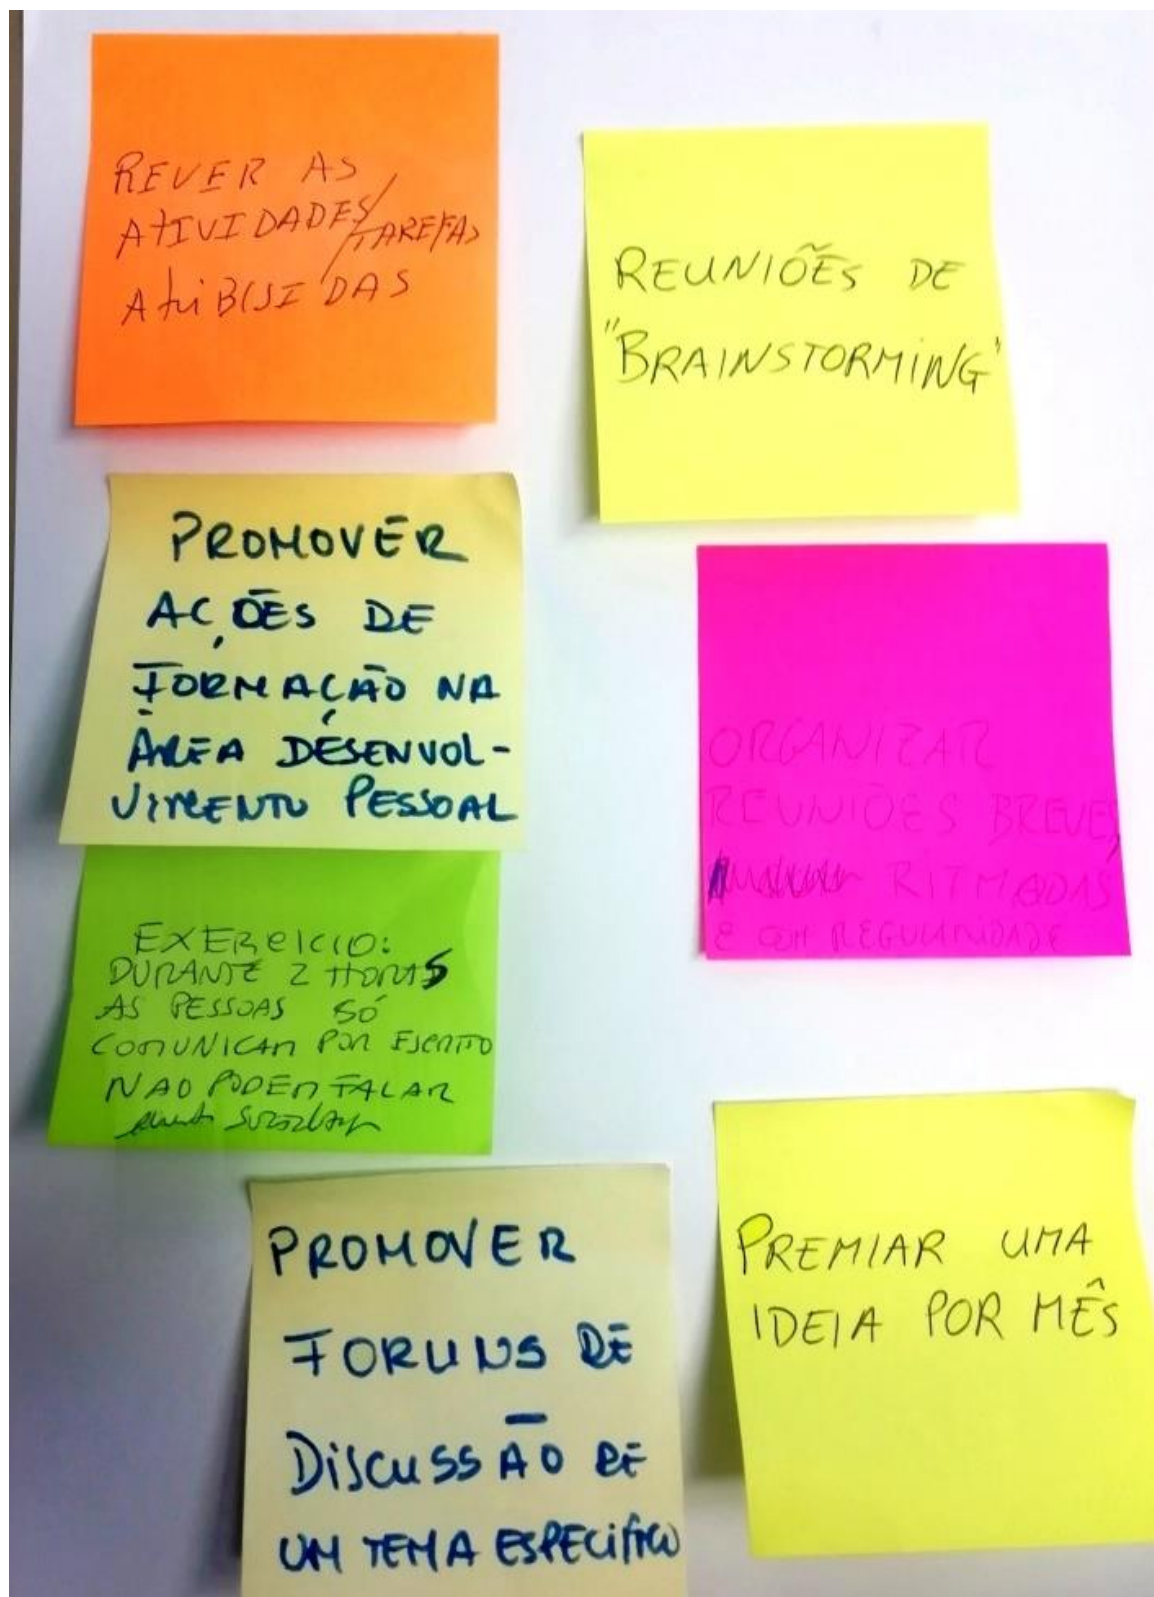 REVER AS
ATIVIDADES/TAREFAS
ATRIBUIDAS
REUNIÕES DE
"BRAINSTORMING"
PROMOVER
AÇÕES DE
FORMAÇÃO NA
ÁREA DESENVOL-
VIMENTO PESSOAL
ORGANIZAR
REUNIÕES BREVES,
RITMADAS
E COM REGULARIDADE
EXERCICIO:
DURANTE 2 HORAS
AS PESSOAS SÓ
COMUNICAM POR ESCRITO
NAO PODEM FALAR
PROMOVER
FORUNS DE
DISCUSSÃO DE
UM TEMA ESPECIFICO
PREMIAR UMA
IDEIA POR MÊS